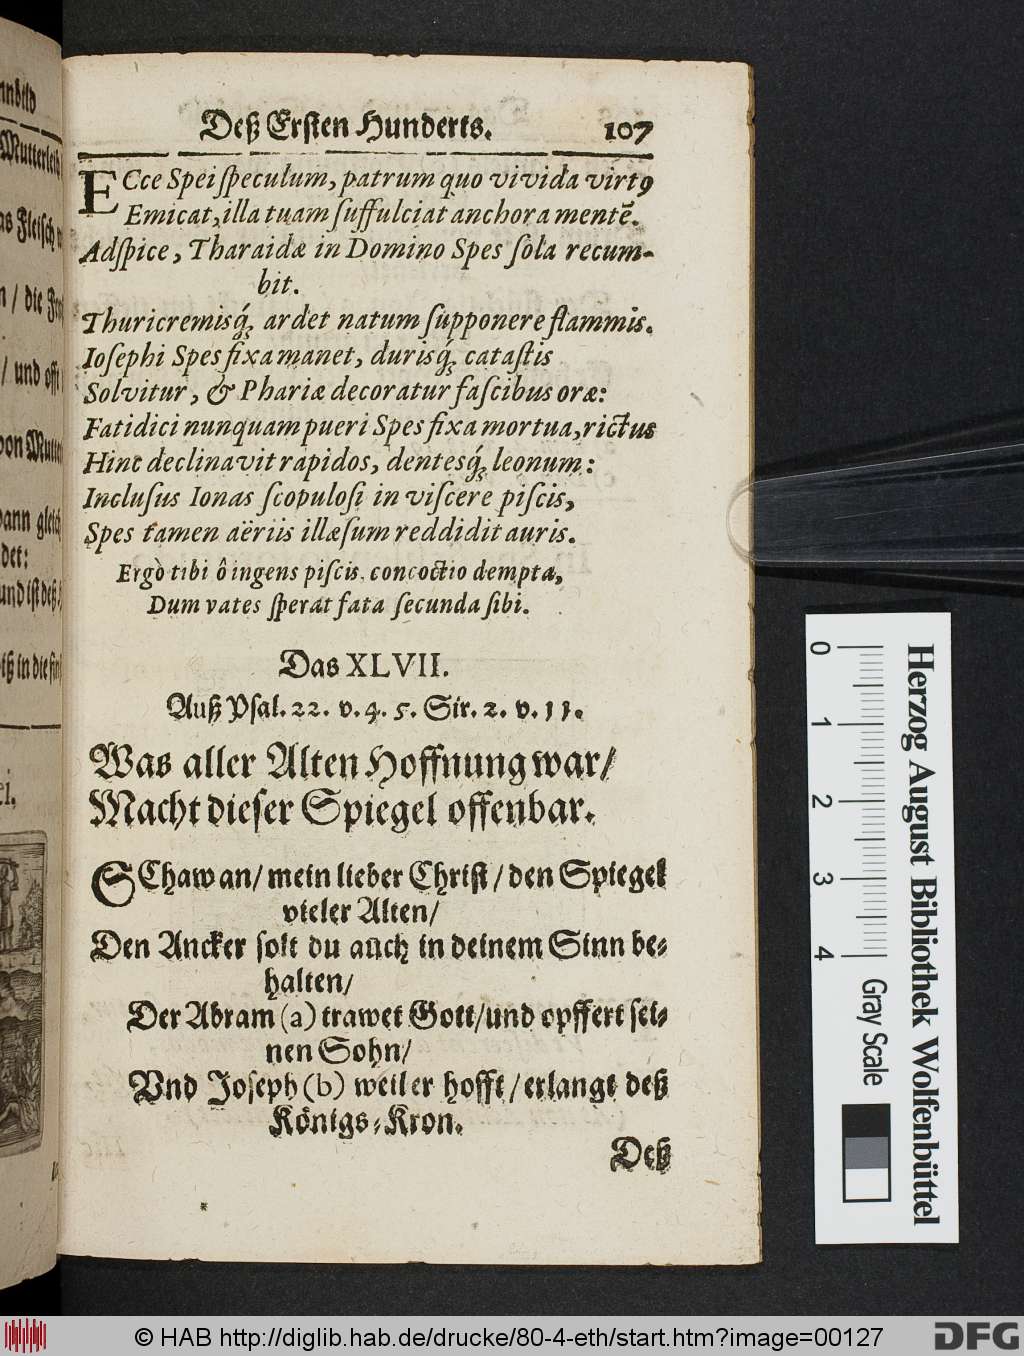 Deß Ersten Hunderts. 107
ECce Spei ſpeculum, patrum quo vivida virtꝰ
Emicat, illa tuam ſuffulciat anchora mentē.
Adſpice, Tharaidæ in Domino Spes ſola recum-
bit.
Thuricremisq́; ardet natum ſupponere flammis.
Ioſephi Spes fixa manet, durisq́; cataſtis
Solvitur, & Phariæ decoratur faſcibus oræ:
Fatidici nunquam pueri Spes fixa mortua, rictus
Hinc declinavit rapidos, dentesq́; leonum:
Incluſus Ionas ſcopuloſi in viſcere piſcis,
Spes tamen aëriis illæſum reddidit auris.
Ergò tibi ô ingens piſcis, concoctio dempta,
Dum vates ſperat fata ſecunda ſibi.
Das XLVII.
Auß Pſal. 22. v. 4. 5. Sir. 2. v. 11.
Was aller Alten Hoffnung war/
Macht dieſer Spiegel offenbar.
SChaw an/ mein lieber Chriſt/ den Spiegel
vieler Alten/
Den Ancker ſolt du auch in deinem Sinn be-
halten/
Der Abram (a) trawet Gott/ und opffert ſei-
nen Sohn/
Vnd Joſeph (b) weil er hofft/ erlangt deß
Königs-Kron.
Deß
nnbild
Mutterleib
as Fleiſch
/ die
/ und
von
dann gleich
det:
und iſt deß
in die
0 1 2 3 4
Herzog August Bibliothek Wolfenbüttel
Gray Scale
© HAB http://diglib.hab.de/drucke/80-4-eth/start.htm?image=00127
DFG